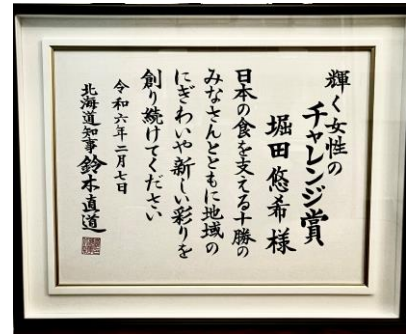 輝く女性の
チャレンジ賞
堀田悠希様
日本の食を支える十勝の
みなさんとともに地域の
にぎわいや新しい彩りを
創り続けてください
令和六年二月七日
北海道知事 鈴木直道